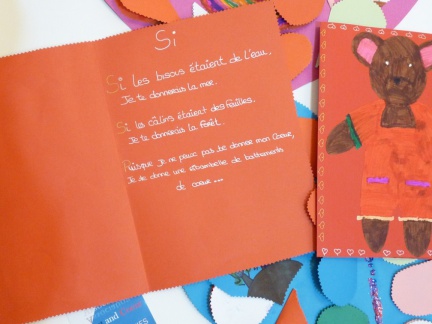 Si
Si les bisous étaient de l'eau,
Je te donnerais la mer.
Si les câlins étaient des feuilles,
Je te donnerais la forêt.
Puisque je ne peux pas te donner mon cœur,
Je te donne une ribambelle de battements
de cœur...
and